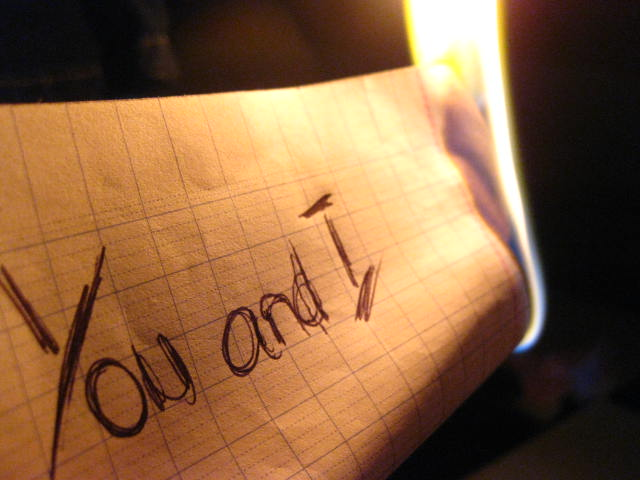 You and I